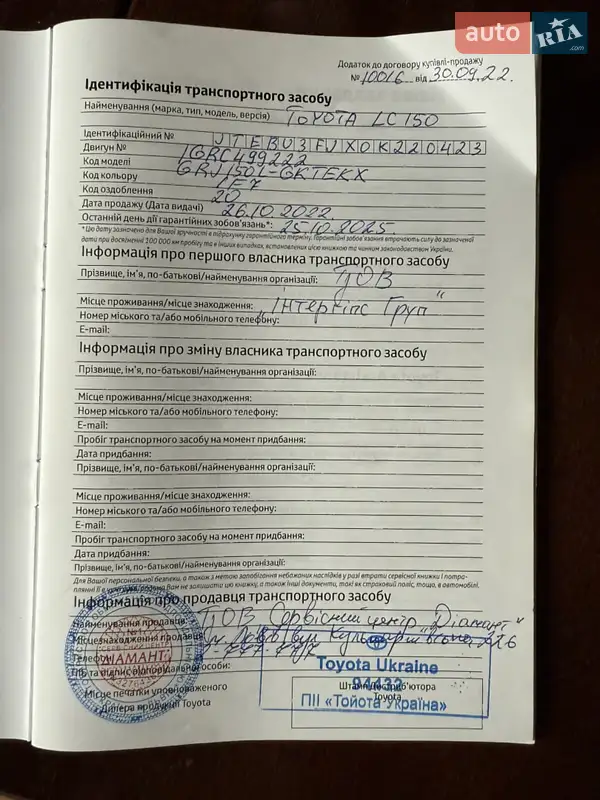 auto RIA .com
Додаток до договору купівлі-продажу
№ 10016 від 30.09.22.
Ідентифікація транспортного засобу
Найменування (марка, тип, модель, версія) TOYOTA LC 150
Ідентифікаційний № JTEBU3FJX0K220423
Двигун № 1GRC499222
Код моделі GRJ150L-GKTEKX
Код кольору 1E7
Код оздоблення 20
Дата продажу (Дата видачі) 26.10.2022.
Останній день дії гарантійних зобов'язань*: 25.10.2025.
*Цю дату зазначено для Вашої зручності в підрахунку гарантійного терміну. Гарантійні зобов'язання втрачають силу до зазначеної
дати при досягненні 100 000 км пробігу та в інших випадках, встановлених цією книжкою та чинним законодавством України.
Інформація про першого власника транспортного засобу
Прізвище, ім'я, по-батькові/найменування організації: ТОВ
Місце проживання/місце знаходження: "Інтерпіпс Груп"
Номер міського та/або мобільного телефону:
E-mail:
Інформація про зміну власника транспортного засобу
Прізвище, ім'я, по-батькові/найменування організації:
Місце проживання/місце знаходження:
Номер міського та/або мобільного телефону:
E-mail:
Пробіг транспортного засобу на момент придбання:
Дата придбання:
Прізвище, ім'я, по-батькові/найменування організації:
Місце проживання/місце знаходження:
Номер міського та/або мобільного телефону:
E-mail:
Пробіг транспортного засобу на момент придбання:
Дата придбання:
Прізвище, ім'я, по-батькові/найменування організації:
Для Вашої персональної безпеки, а також з метою запобігання небажаних наслідків у разі втрати сервісної книжки і потра-
плянні її в чужі руки, радимо Вам не залишати цю книжку, а також інші документи, такі як страховий поліс, тощо, в автомобілі.
Інформація про продавця транспортного засобу
Найменування продавця ТОВ Сервісний центр "Діамант"
Місцезнаходження продавця вул 226
Телефон
ПІБ та підпис відповідальної особи:
ДІАМАНТ
Місце печатки уповноваженого
Дилера продукції Toyota
Toyota Ukraine
94432
Штамп дистриб'ютора
Toyota
ПІІ «Тойота Україна»